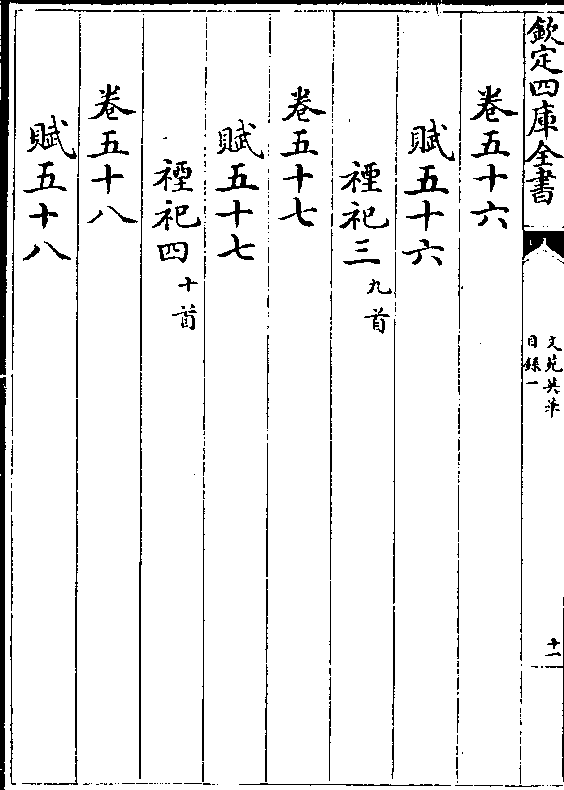 欽定四庫全書
文苑英華
目録一
十一
卷五十六
賦五十六
禋祀三九首
卷五十七
賦五十七
禋祀四十首
卷五十八
賦五十八